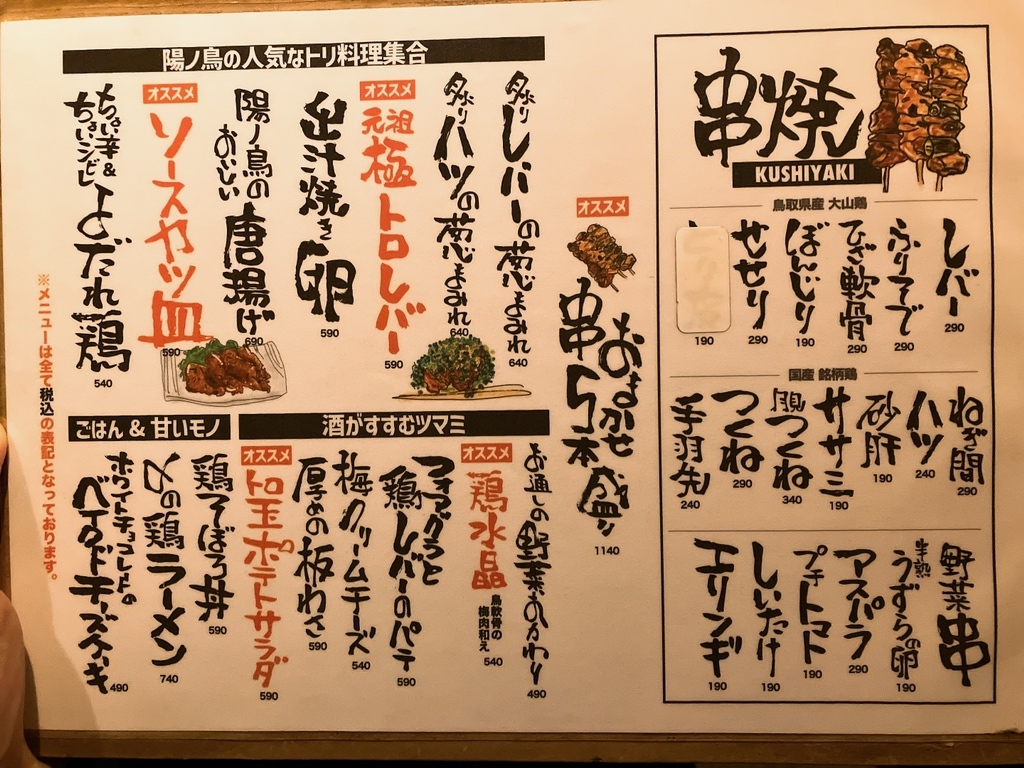 串焼
KUSHIYAKI
鳥取県産 大山鶏
レバー
290
ふりそで
290
ひざ軟骨
290
ぼんじり
190
せせり
290
190
国産 銘柄鶏
ねぎ間
290
ハツ
240
砂肝
190
ササミ
190
親つくね
340
つくね
290
手羽先
240
野菜串
半熟
うずらの卵
190
アスパラ
290
プチトマト
190
しいたけ
190
エリンギ
190
オススメ
おまかせ
串5本盛り
1140
陽ノ鳥の人気なトリ料理集合
炙りレバーの葱まみれ
640
炙りハツの葱まみれ
640
オススメ
元祖
極トロレバー
590
出汁焼き卵
590
陽ノ鳥の
おいしい
唐揚げ
690
オススメ
ソースヤツ皿
590
ちょい辛&
ちょいシビレ
よだれ鶏
540
酒がすすむツマミ
お通しの野菜おかわり
490
オススメ
鶏水晶
鳥軟骨の
梅肉和え
540
フォアグラと
鶏レバーのパテ
590
梅クリームチーズ
540
厚めの板わさ
590
オススメ
トロ玉ポテトサラダ
590
ごはん & 甘いモノ
鶏そぼろ丼
590
〆の鶏ラーメン
740
ホワイトチョコレートの
ベイクドチーズケーキ
490
※メニューは全て税込の表記となっております。